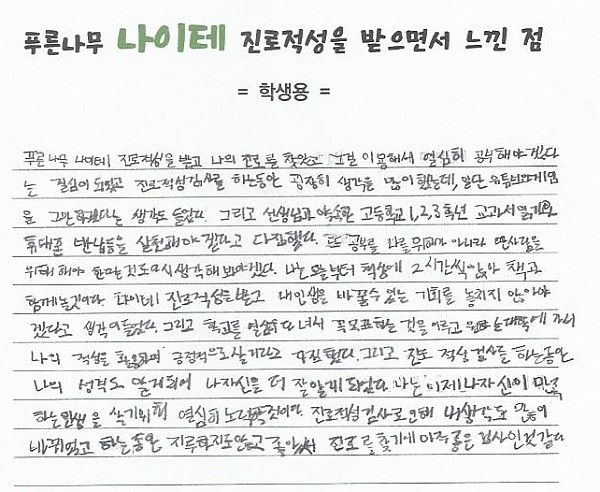 푸른나무 나이테 진로적성을 받으면서 느낀 점
= 학생용 =
푸른나무 나이테 진로적성을 받고 나의 진로를 찾았고 그걸 이용해서 열심히 공부해야겠다
는 결심이 되었고 진로적성검사를 하는동안 굉장히 생각을 많이 했는데, 일단 유튜브와게임
을 그만하겠다는 생각도 들었다. 그리고 선생님과 약속한 고등학교 1,2,3학년 교과서 읽기와
휴대폰 반납등을 실천해야 겠다고 다짐했다. 또 공부를 나를위해가 아니라 만사람을
위해 해야 한다는것도 다시생각해 봐야겠다. 나는 오늘부터 책상에 2시간씩 앉아 책과
함께놀것이다 나이테 진로적성을받고 내인생을 바꿀수 있는 기회를 놓치지 않아야
겠다고 생각이들었다. 그리고 학교를 열심히 다녀서 꼭 목표하는 것을 이루고 원하는대학에 가서
나의 적성을 활용하며 긍정적으로 살기라고 다짐했다. 그리고 진로 적성검사를 하는동안
나의 성격도 알게되어 나자신을 더 잘알게 되었다. 나는 이제 나자신이 만족
하는인생을 살기위해 열심히 노력할것이다. 진로적성검사로 인해 내생각도 많이
바뀌었고 하는동안 지루하지도않고 좋아서 진로를 찾기에 아주좋은 검사인것같다